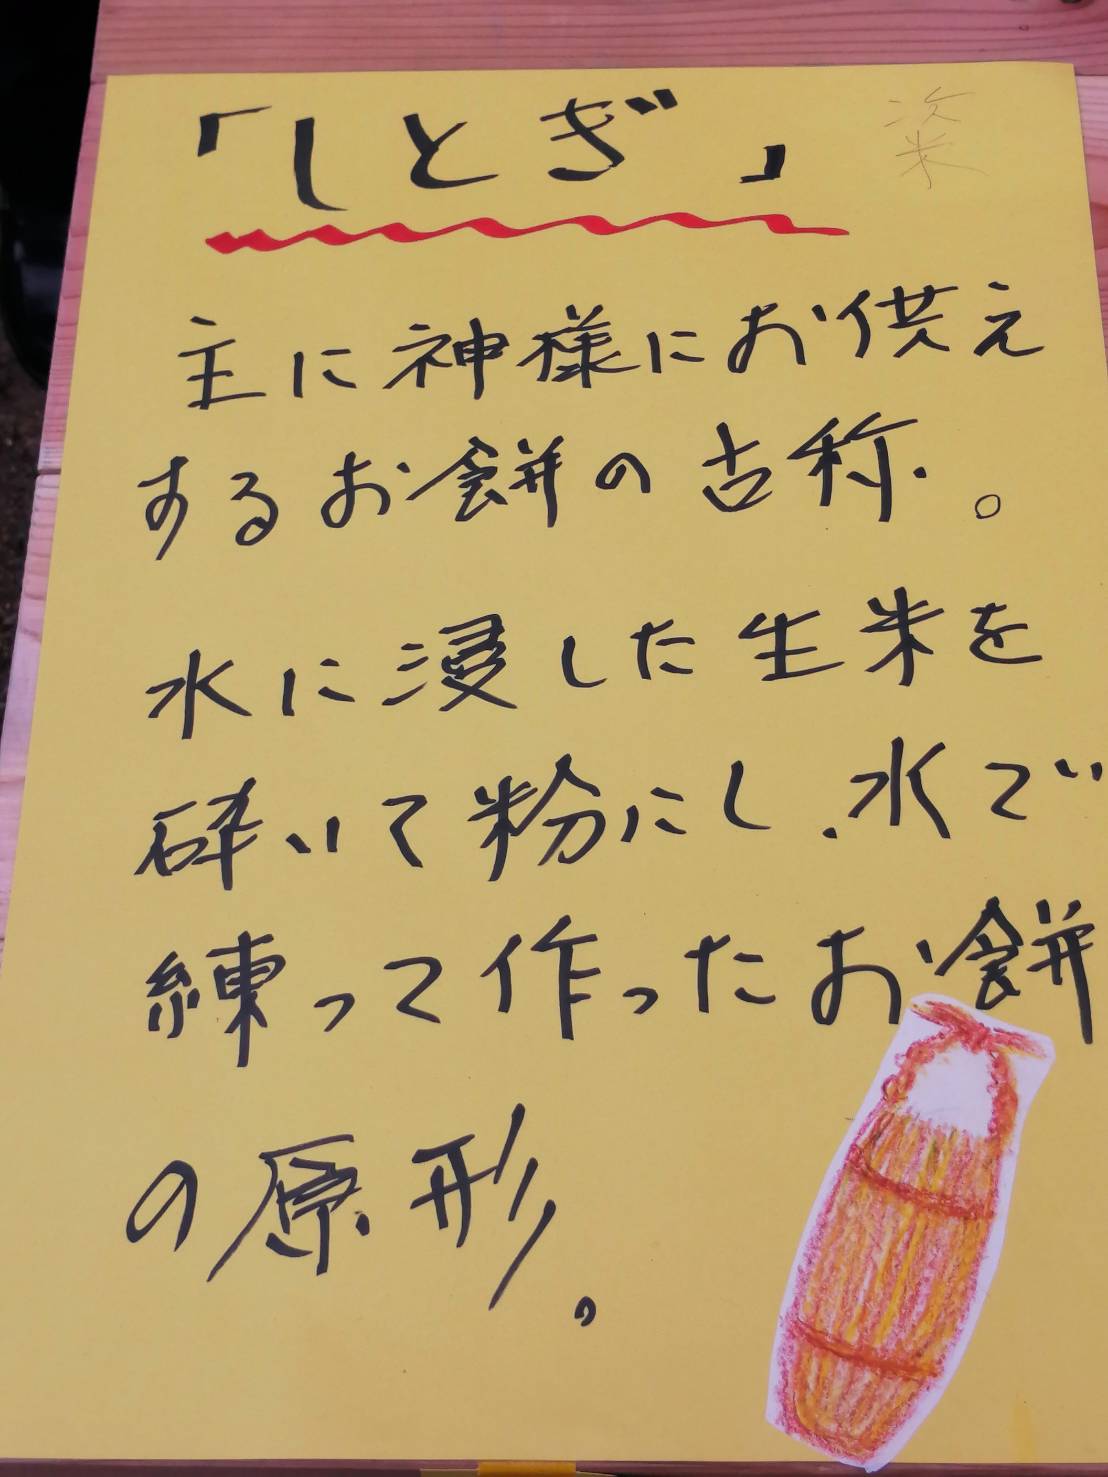 「しとぎ」
粢
主に神様にお供え
するお餅の古称。
水に浸した生米を
砕いて粉にし、水で
練って作ったお餅
の原形。